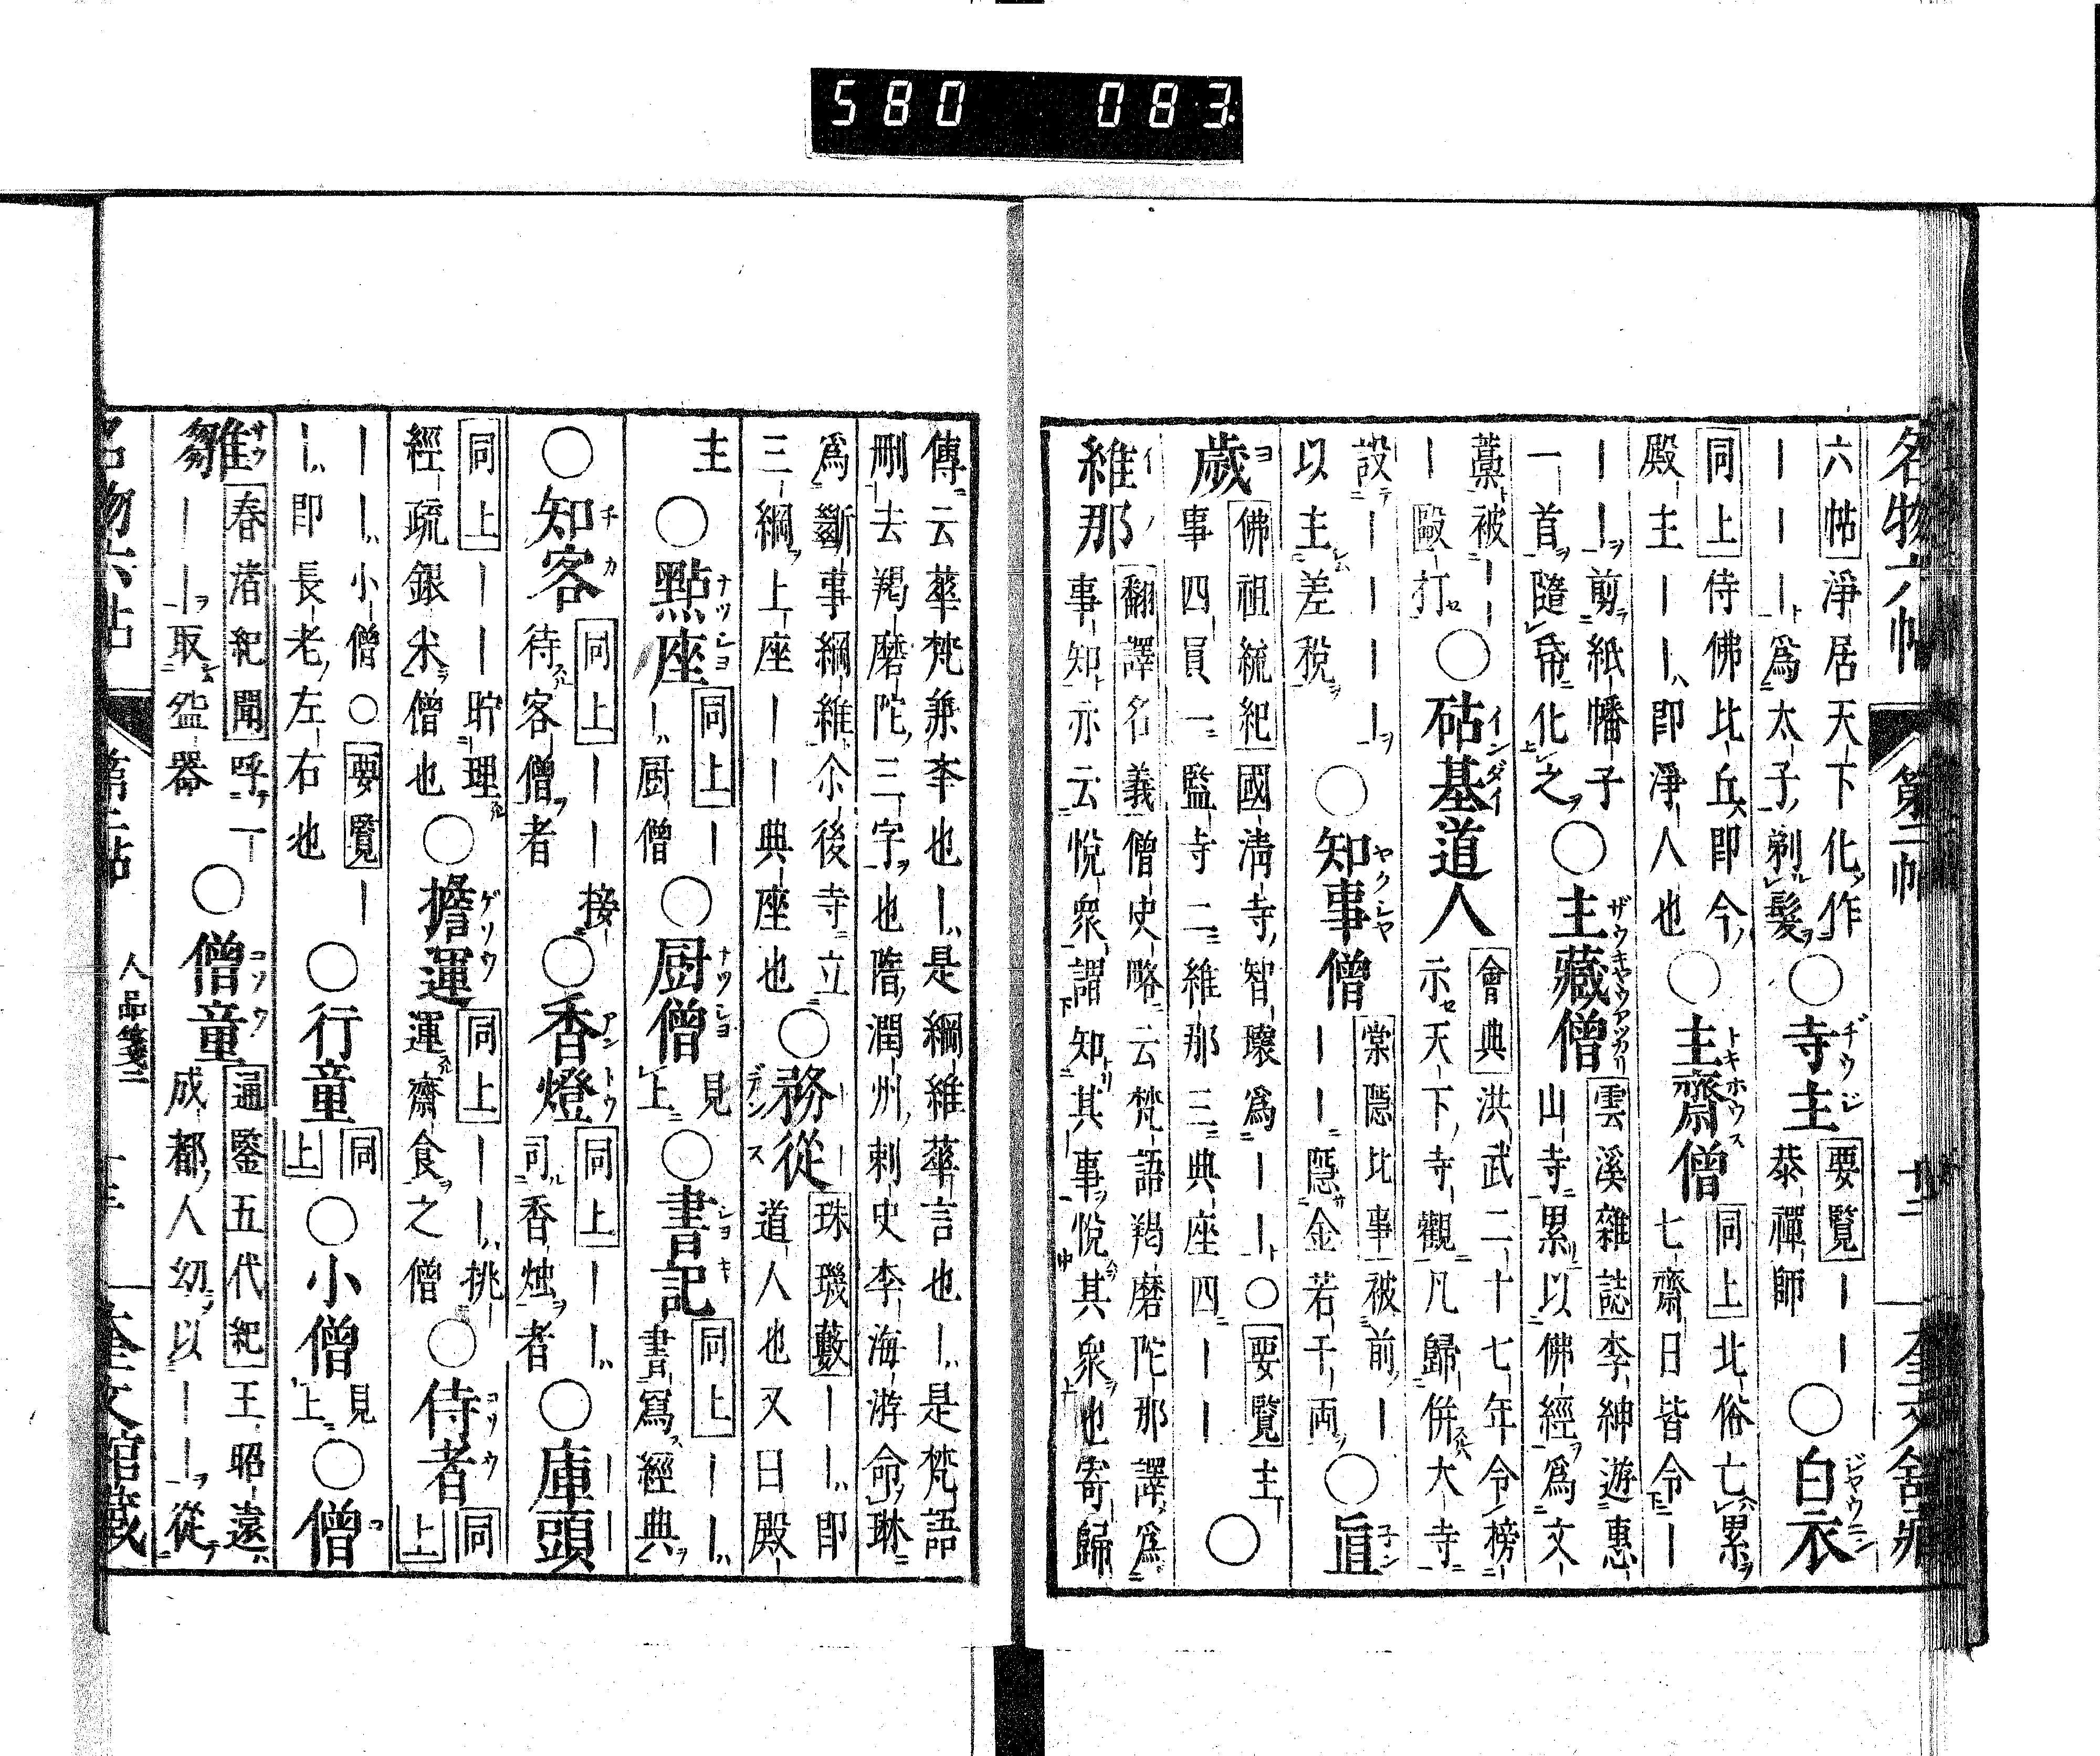 名物六帖 第二帖 十二 奎文舘藏
六帖 淨居天下化作
ーーー爲太子剃髮
○寺主
要覽ーー
恭禪師
○白衣
同上 侍佛比丘即今
殿主ーー即淨人也
○主齋僧
同上 北俗亡累
七齋日皆令ー
ーー剪紙幡子
一首隨帋化之
○主藏僧
雲溪雜誌 李紳遊惠
山寺累以佛經爲文
藁被ーー
ー毆打
○砧基道人
會典 洪武二十七年令榜
示天下寺觀凡歸併大寺
設ーーーー
以主差税
○知事僧
棠隱比事 被前ー
ーー隱金若干両
○直
歲
佛祖統紀 國清寺智璪爲ーー○要覽 主
事四員一監寺二維那三典座四ーー
○
維那
翻譯名義 僧史略云梵語羯磨陀那譯爲
事知亦云悅衆謂知其事悅其衆也寄歸
傳云華梵兼举也ー是綱維華言也ー是梵語
刪去羯磨陀三字也隋潤州刺史李海游命琳
爲斷事綱維尒後寺立
三綱上座ーー典座也
○務從
珠璣藪ーー即
道人也又曰殿
主
○點座
同上ー
ー厨僧
○厨僧
見上
○書記
同上ーー
書寫經典
○知客
同上ーー接
待客僧者
○香燈
同上ーー
司香燭者
○庫頭
同上ーー貯理
經疏銀米僧也
○擔運
同上ーー挑
運齋食之僧
○侍者
同上
ーー小僧○要覽ー
ー即長老左右也
○行童
同上
○小僧
見上
○僧
雛
春渚紀聞 呼一
ーー取盥器
○僧童
通鑒五代紀 王昭遠
成都人幼以ーー從
名物六帖 第二帖 人品箋二 奎文舘藏
580 083